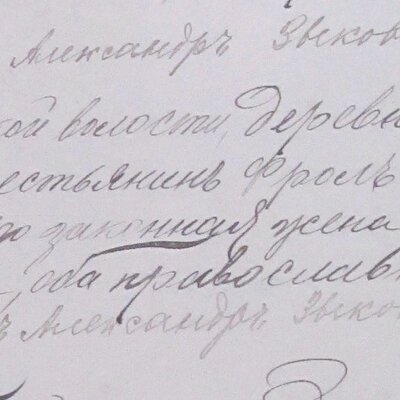 Александръ Зыков
кой волости, деревн
естьянинъ Фролъ
го законная жена
оба православн
ъ Александръ Зыков